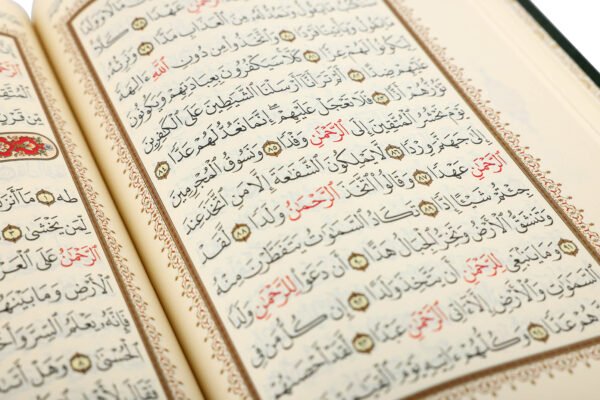 عَهْدًا ۝ كَلَّا
مِنَ ٱلْعَذَابِ مَدًّا ۝ وَنَرِثُهُۥ
فَرْدًا ۝ وَٱتَّخَذُوا۟ مِن دُونِ ٱللَّهِ ءَالِهَةً
لِّيَكُونُوا۟ لَهُمْ عِزًّا ۝ كَلَّا سَيَكْفُرُونَ بِعِبَادَتِهِمْ وَيَكُونُونَ
عَلَيْهِمْ ضِدًّا ۝ أَلَمْ تَرَ أَنَّآ أَرْسَلْنَا ٱلشَّيَٰطِينَ عَلَى ٱلْكَٰفِرِينَ
تَؤُزُّهُمْ أَزًّا ۝ فَلَا تَعْجَلْ عَلَيْهِمْ إِنَّمَا نَعُدُّ لَهُمْ عَدًّا ۝٨٤
يَوْمَ نَحْشُرُ ٱلْمُتَّقِينَ إِلَى ٱلرَّحْمَٰنِ وَفْدًا ۝٨٥ وَنَسُوقُ ٱلْمُجْرِمِينَ
إِلَىٰ جَهَنَّمَ وِرْدًا ۝٨٦ لَّا يَمْلِكُونَ ٱلشَّفَٰعَةَ إِلَّا مَنِ ٱتَّخَذَ عِندَ
ٱلرَّحْمَٰنِ عَهْدًا ۝٨٧ وَقَالُوا۟ ٱتَّخَذَ ٱلرَّحْمَٰنُ وَلَدًا ۝٨٨ لَّقَدْ
جِئْتُمْ شَيْـًٔا إِدًّا ۝٨٩ تَكَادُ ٱلسَّمَٰوَٰتُ يَتَفَطَّرْنَ مِنْهُ
وَتَنشَقُّ ٱلْأَرْضُ وَتَخِرُّ ٱلْجِبَالُ هَدًّا ۝٩٠ أَن دَعَوْا۟ لِلرَّحْمَٰنِ وَلَدًا
۝٩١ وَمَا يَنۢبَغِى لِلرَّحْمَٰنِ أَن يَتَّخِذَ وَلَدًا ۝٩٢ إِن كُلُّ مَن فِى
ٱلسَّمَٰوَٰتِ وَٱلْأَرْضِ إِلَّآ ءَاتِى ٱلرَّحْمَٰنِ عَبْدًا ۝٩٣ لَّقَدْ أَحْصَىٰهُمْ
عَدًّا ۝٩٤ وَكُلُّهُمْ ءَاتِيهِ يَوْمَ ٱلْقِيَٰمَةِ
ٱلرَّحْمَٰنُ
مِّن قَرْنٍ
طه ۝ مَآ أَنزَلْنَا
لِّمَن يَخْشَىٰ ۝
ٱلرَّحْمَٰنُ عَلَى ٱلْعَرْشِ
ٱلْأَرْضِ وَمَا بَيْنَهُمَا
فَإِنَّهُۥ يَعْلَمُ ٱلسِّرَّ وَأَخْفَى
ٱلْحُسْنَىٰ ۝ وَهَلْ أَتَىٰكَ
فَقَالَ لِأَهْلِهِ